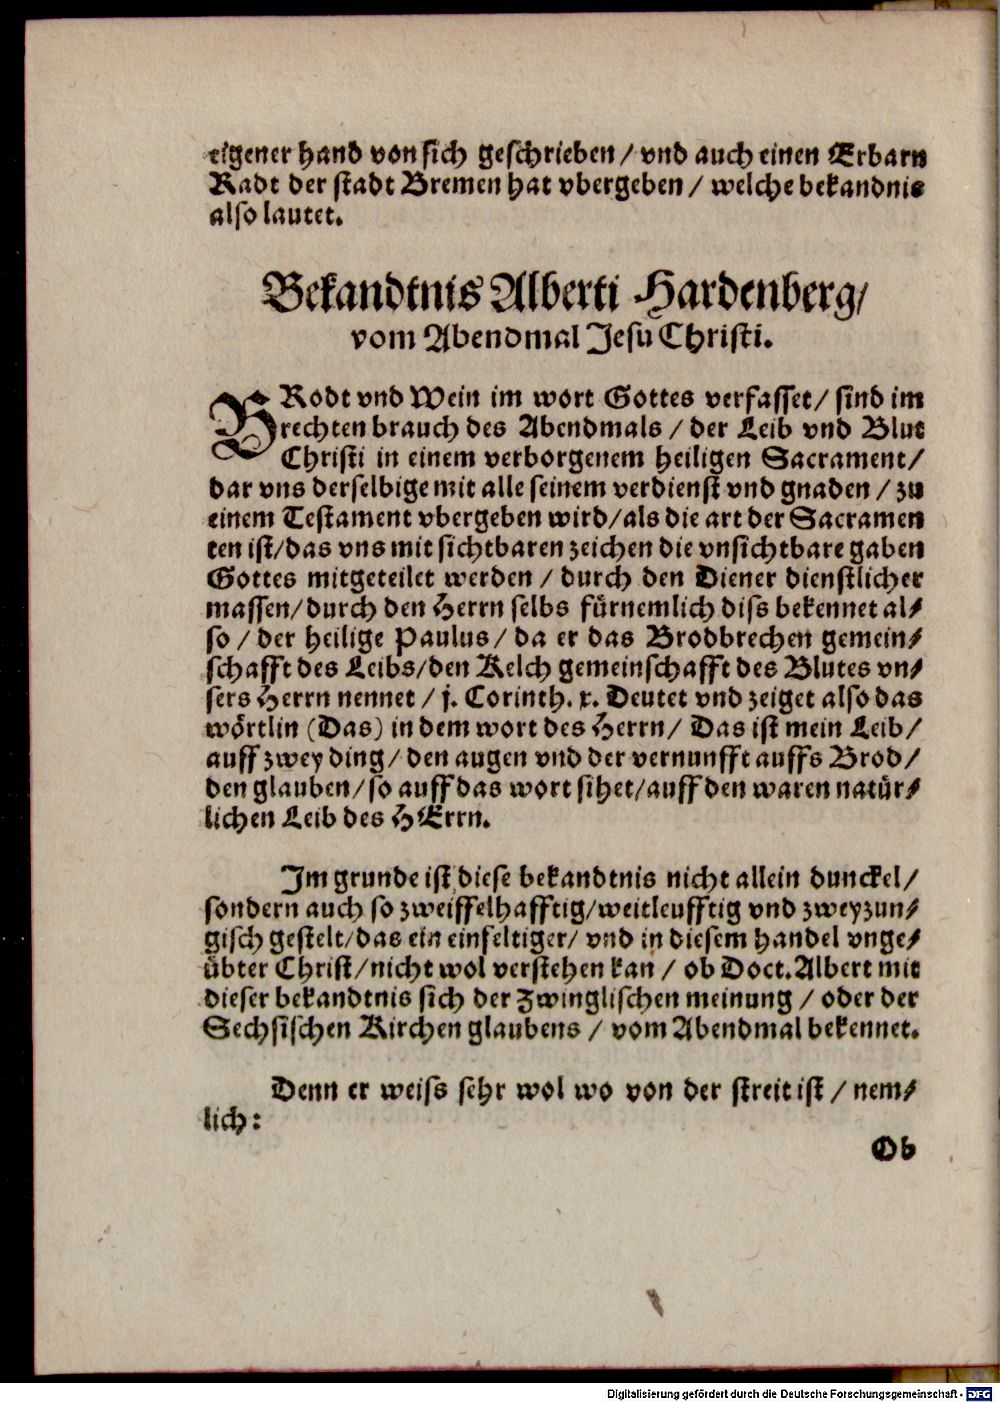 eigener hand von sich geschrieben / vnd auch einen Erbarn
Radt der stadt Bremen hat vbergeben / welche bekandnis
also lautet.
Bekandtnis Alberti Hardenberg/
vom Abendmal Jesu Christi.
BRodt vnd Wein im wort Gottes verfasset/ sind im
rechten brauch des Abendmals / der Leib vnd Blut
Christi in einem verborgenem heiligen Sacrament/
dar vns derselbige mit alle seinem verdienst vnd gnaden / zu
einem Testament vbergeben wird/als die art der Sacramen
ten ist/das vns mit sichtbaren zeichen die vnsichtbare gaben
Gottes mitgeteilet werden / durch den Diener dienstlicher
massen/durch den Herrn selbs fürnemlich diss bekennet al-
so / der heilige Paulus/ da er das Brodbrechen gemein-
schafft des Leibs/den Kelch gemeinschafft des Blutes vn-
sers Herrn nennet / j. Corinth. x. Deutet vnd zeiget also das
wörtlin (Das) in dem wort des Herrn/ Das ist mein Leib/
auff zwey ding/ den augen vnd der vernunfft auffs Brod/
den glauben/so auff das wort sihet/auff den waren natür-
lichen Leib des HErrn.
Im grunde ist diese bekandtnis nicht allein dunckel/
sondern auch so zweiffelhafftig/weitleufftig vnd zweyzun-
gisch gestelt/das ein einfeltiger/ vnd in diesem handel vnge-
übter Christ/nicht wol verstehen kan / ob Doct.Albert mit
dieser bekandtnis sich der Zwinglischen meinung / oder der
Sechsischen Kirchen glaubens / vom Abendmal bekennet.
Denn er weiss sehr wol wo von der streit ist / nem-
lich:
Ob
Digitalisierung gefördert durch die Deutsche Forschungsgemeinschaft - DFG